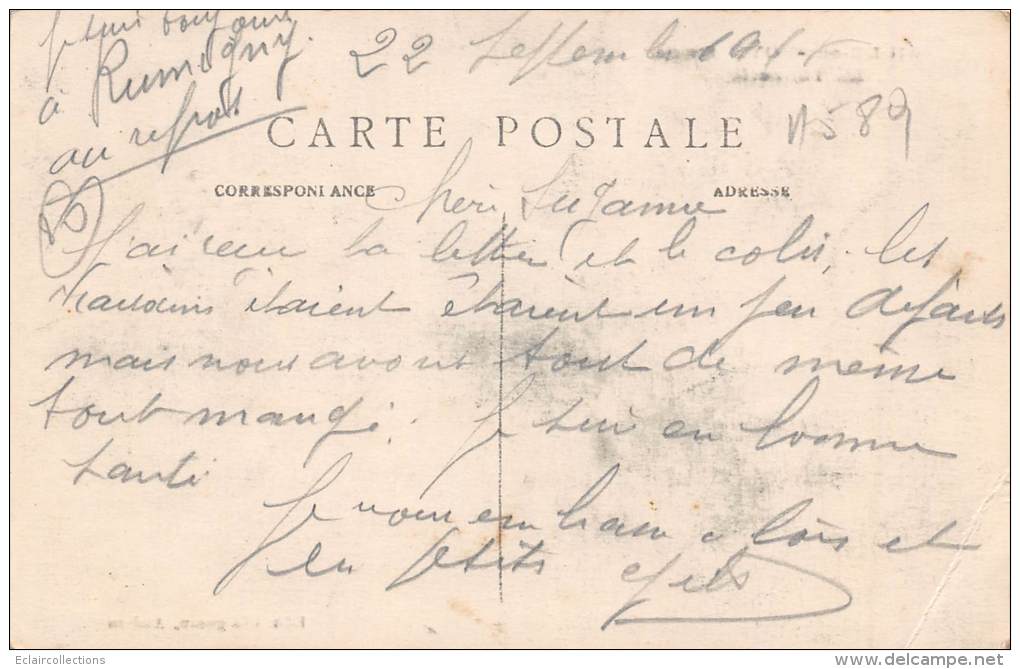 Je suis toujours
à Rumigny
au repos
22 Septembre 191
CARTE POSTALE
N5 89
CORRESPONDANCE
ADRESSE
Chèri Suzanne
J'ai reçu ta lettre et le colis, les
raisins étaient étaient un peu défaits
mais nous avons tout de même
tout mangé. Je suis en bonne
santé
Je vous embrasse et
les petits
Eclaircollections
www.delcampe.net